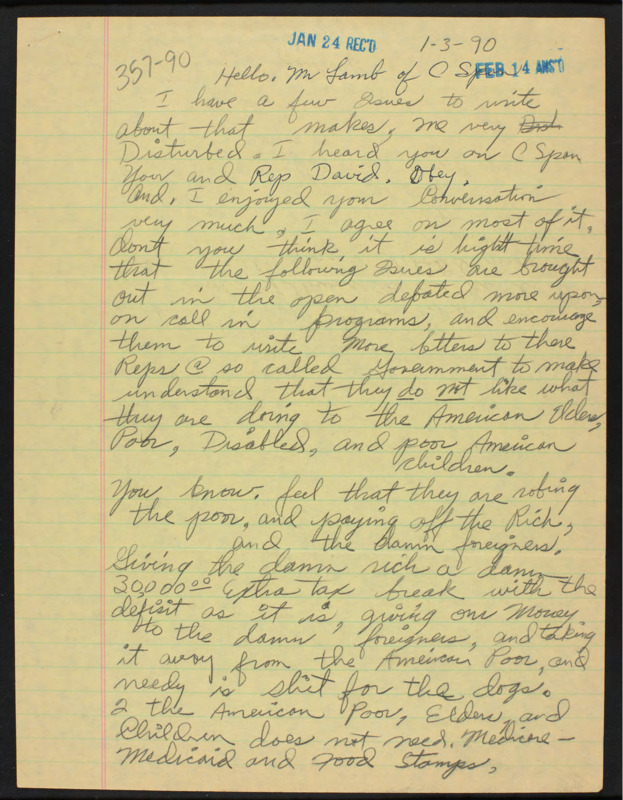 JAN 24 REC'D 1-3-90
357-90
Hello. Mr Lamb of C Span FEB 14 ANS'D
I have a few Isues to write
about that makes, me very Dist
Disturbed. I heard you on C Span
Your and Rep David. Obey.
And, I enjoyed your Conversation
very much, I agree on most of it.
dont you think it is hight time
that the following Isues are brought
out in the open debated more upon,
on call in programs, and encourage
them to write More letters to there
Reps @ so called Government to make
understand that they do not like what
they are doing to the American Elders,
Poor, Disabled, and poor American
children.
You know. feel that they are robing
the poor, and paying off the Rich,
and the damn foreigners.
Giving the damn rich a damn
30,000.00 Extra tax break with the
defisit as it is, giving our Money
to the damn foreigners, and taking
it away from the American Poor, and
needy is shit for the dogs.
2 the American Poor, Elders, and
Children does not need. Medicare-
Medicaid and Food Stamps,